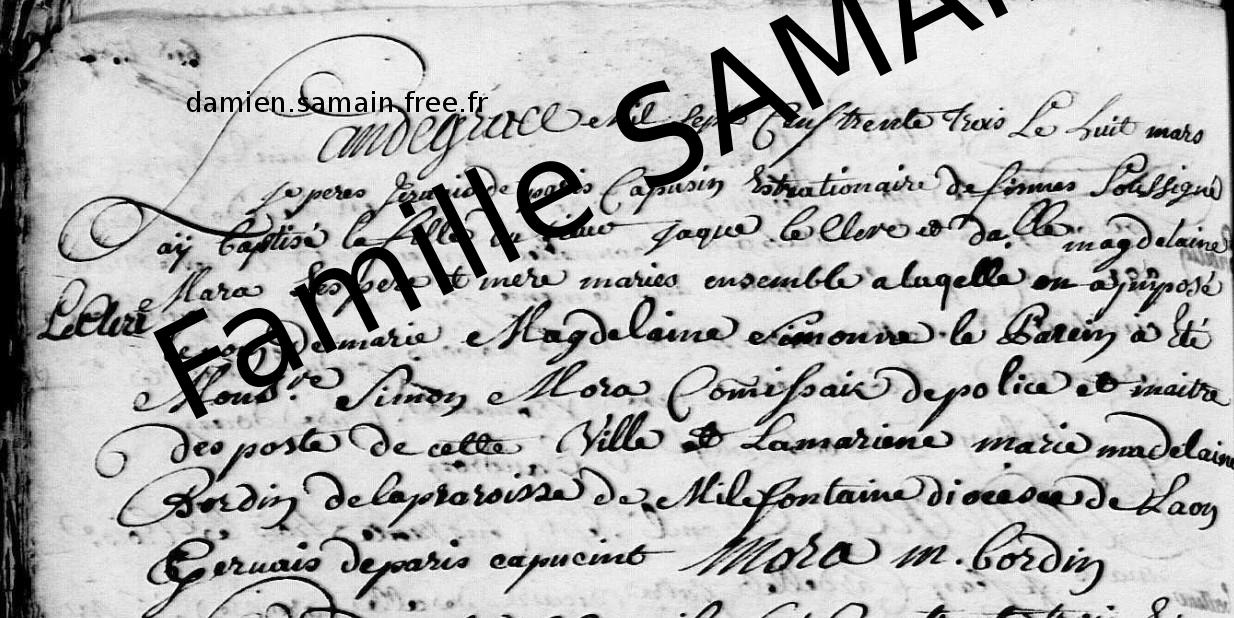 damien.samain.free.fr
Famille SAMA
Landegrace Mil sept Cens trente trois Le huit mars
Je peres Gervais de paris Capusin de fimes Soussigné
aÿ baptisé la fille du Sieur Jaque le Clere et da.lle magdelaine
Mara Ses pere et mere maries ensemble a luqelle on a jmposé
LeClere
le nom de marie Magdelaine Simonne le Parein à Eté
Mons.re Simon Mora Comissair de police et maitre
des poste de cette Ville et Lamariene marie madelaine
Bordin de laparoisse de Milefontaine diocese de Laon
Gervais deparis capucint Mora m. bordin